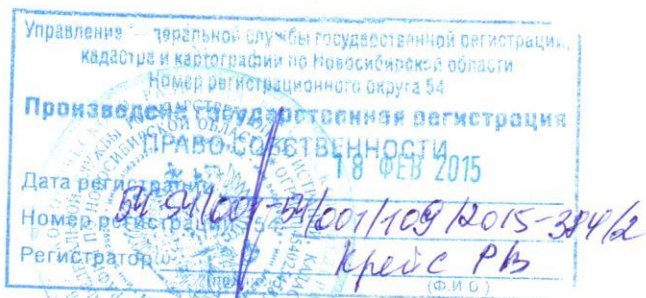 Управление федеральной службы государственной регистрации,
кадастра и картографии по Новосибирской области
Номер регистрационного округа 54
Произведена государственная регистрация
ПРАВО СОБСТВЕННОСТИ
Дата регистрации 18 ФЕВ 2015
Номер регистрации 54-54/001-54/001/109/2015-384/2
Регистратор Крейс РВ
(Ф.И.О)